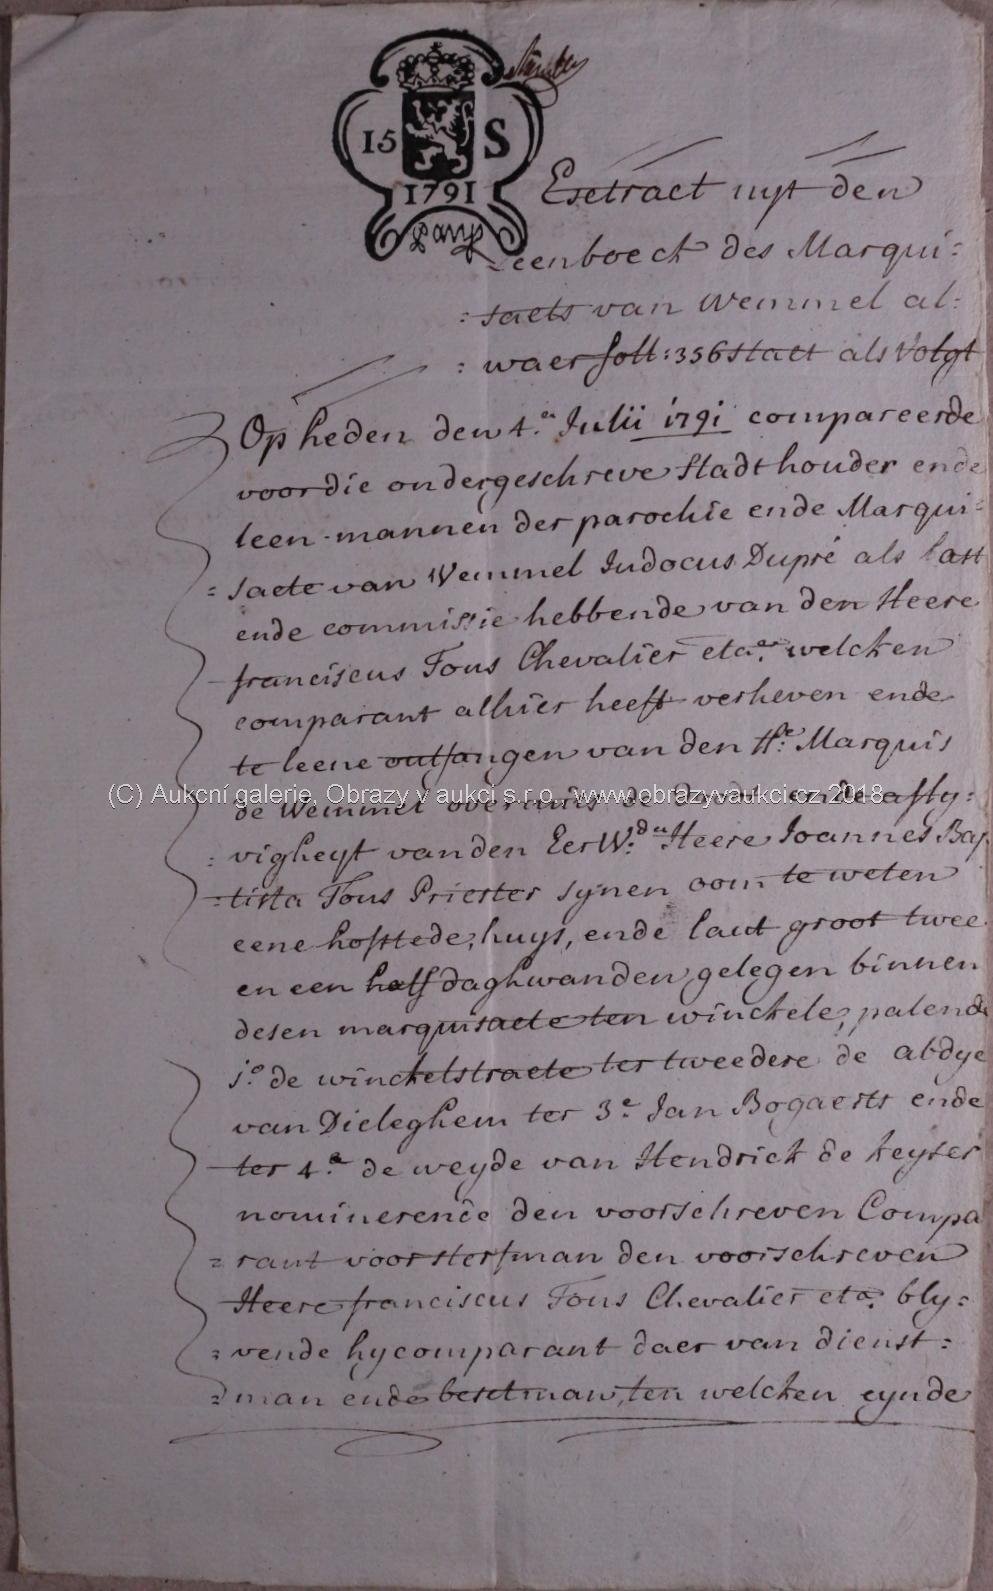 15 S
1791
Extract uyt den
Leenboeck des Marqui=
=saets van Wemmel al=
=waer foll: 356 staet als volgt
Op heden den 4.en Julii 1791 compareerde
voor die ondergeschreve Stadthouder ende
leen-mannen der parochie ende Marqui=
=saete van Wemmel Judocus Dupré als last
ende commissie hebbende van den Heere
franciscus Fous Chevalier etca. welcken
comparant alhier heeft verheven ende
te leene ontfangen van den He. Marquis
de Wemmel over mids de doodt ende afly=
=vigheyt van den EerW.den Heere Joannes Bap
=tista Fous Priester synen oom te weten
eene hofstede, huys, ende laut groot twee
en een half daghwanden gelegen binnen
desen marquisaete ten winckele, palende
j.o de winckelstraete ter tweedere de abdye
van Dieleghem ter 3.e Jan Bogaerts ende
ter 4.e de weyde van Hendrick de keyser
nominerende den voorschreven Compa
=rant voor sterfman den voorschreven
Heere franciscus Fous Chevalier etca. bly=
=vende hy comparant daer van dienst=
=man ende besetman, ten welcken eynde
(C) Aukcní galerie, Obrazy v aukci s.r.o., www.obrazyvaukci.cz 2018